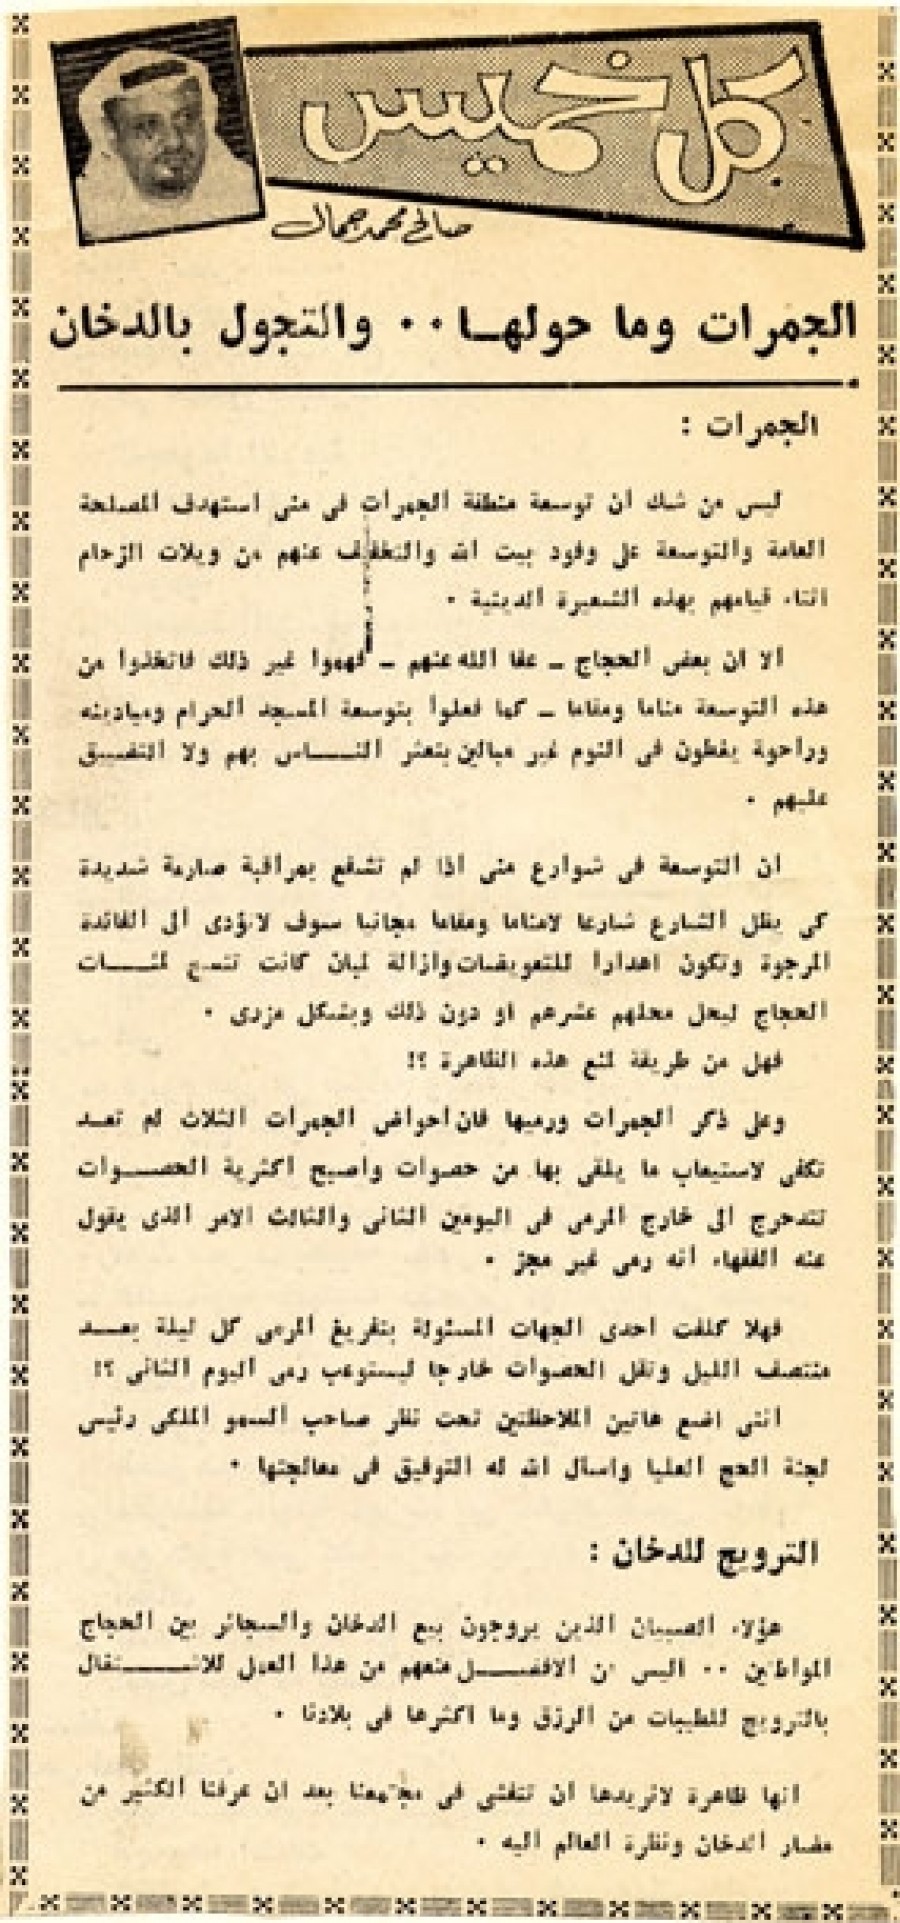 كل خميس
صالح محمد جمال
الجمرات وما حولهـا ٠٠ والتجول بالدخان
الجمرات :
ليس من شك ان توسعة منطقة الجمرات فى منى استهدف المصلحة
العامة والتوسعة على وفود بيت الله والتخفيف عنهم من ويلات الزحام
اثناء قيامهم بهذه الشعيرة الدينية ٠
الا ان بعض الحجاج ـ عفا الله عنهم ـ فهموا غير ذلك فاتخذوا من
هذه التوسعة مناما ومقاما ـ كما فعلوا بتوسعة المسجد الحرام وميادينه
وراحوة يغطون فى النوم غير مبالين بتعثر النـــاس بهم ولا التضييق
عليهم ٠
ان التوسعة فى شوارع منى اذا لم تشفع بمراقبة صارمة شديدة
كى يظل الشارع شارعا لامناما ومقاما مجانيا سوف لاتؤدى الى الفائدة
المرجوة وتكون اهدارا للتعويضات وازالة لمبان كانت تتسع لمئـــات
الحجاج ليحل محلهم عشرهم او دون ذلك وبشكل مزدى ٠
فهل من طريقة لمنع هذه الظاهرة ؟!
وعلى ذكر الجمرات ورميها فان احواض الجمرات الثلاث لم تعـد
تكفى لاستيعاب ما يلقى بها من حصوات واصبح اكثرية الحصـــوات
تتدحرج الى خارج المرمى فى اليومين الثانى والثالث الامر الذى يقول
عنه الفقهاء انه رمى غير مجز ٠
فهلا كلفت احدى الجهات المسئولة بتفريغ المرمى كل ليلة بعـــد
منتصف الليل ونقل الحصوات خارجا ليستوعب رمى اليوم الثانى ؟!
اننى اضع هاتين الملاحظتين تحت نظر صاحب السمو الملكى رئيس
لجنة الحج العليا واسأل الله له التوفيق فى معالجتها ٠
الترويج للدخان :
هؤلاء الصبيان الذين يروجون بيع الدخان والسجائر بين الحجاج
المواطنين ٠٠ اليس من الافضـــل منعهم من هذا العمل للانـــتقال
بالترويج للطيبات من الرزق وما اكثرها فى بلادنا ٠
انها ظاهرة لانريدها ان تتفشى فى مجتمعنا بعد ان عرفنا الكثير من
مضار الدخان ونظرة العالم اليه ٠